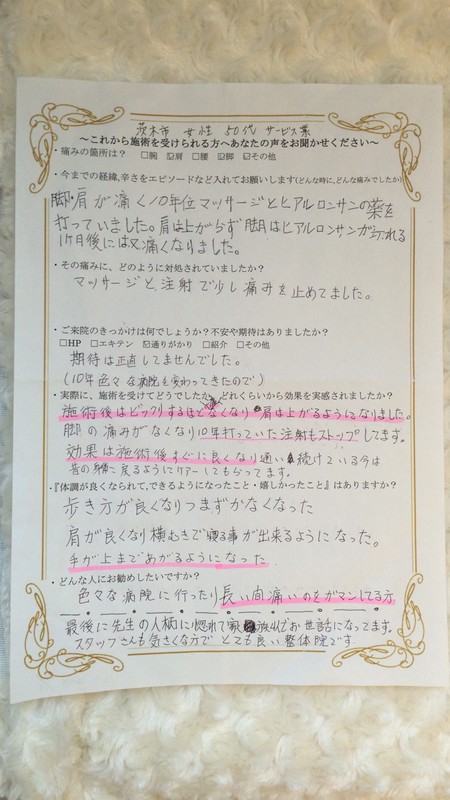 茨木市 女性 50代 サービス業
～これから施術を受けられる方へあなたの声をお聞かせください～
・痛みの箇所は？ □腕 ☑肩 □腰 ☑脚 ☑その他
・今までの経緯,辛さをエピソードなど入れてお願いします(どんな時に,どんな痛みでしたか)
脚・肩が痛く10年位マッサージとヒアルロンサンの薬を
打っていました。肩は上がらず脚はヒアルロンサンがきれる
1ヶ月後には又痛くなりました。
・その痛みに、どのように対処されていましたか？
マッサージと注射で少し痛みを止めてました。
・ご来院のきっかけは何でしょうか？不安や期待はありましたか？
□HP □エキテン ☑通りがかり □紹介 □その他
期待は正直してませんでした。
(10年色々な病院も変わってきたので)
・実際に、施術を受けてどうでしたか、どれくらいから効果を実感されましたか？
施術後はビックリするほど なくなり 肩は上がるようになりました。
脚の痛みがなくなり10年打っていた注射もストップしてます。
効果は施術後すぐに良くなり通い続けている今は
昔の に戻るようにケアーしてもらってます。
・『体調が良くなられて,できるようになったこと・嬉しかったこと』はありますか？
歩き方が良くなりつまずかなくなった
肩が良くなり横むきで寝る事が出来るようになった。
手が上まであがるようになった
・どんな人にお勧めしたいですか？
色々な病院に行ったり長い間痛いのをガマンしてる方
最後に先生の人柄に惚れて家族でお世話になってます。
スタッフさんも気さくな方でとても良い整体院です